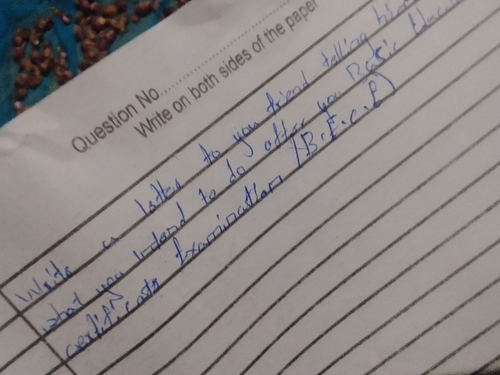 Question No..................
Write on both sides of the paper
Write a letter to you friend telling him
what you intend to do after you Basic Educa
certificate Examination (B.E.C.E)